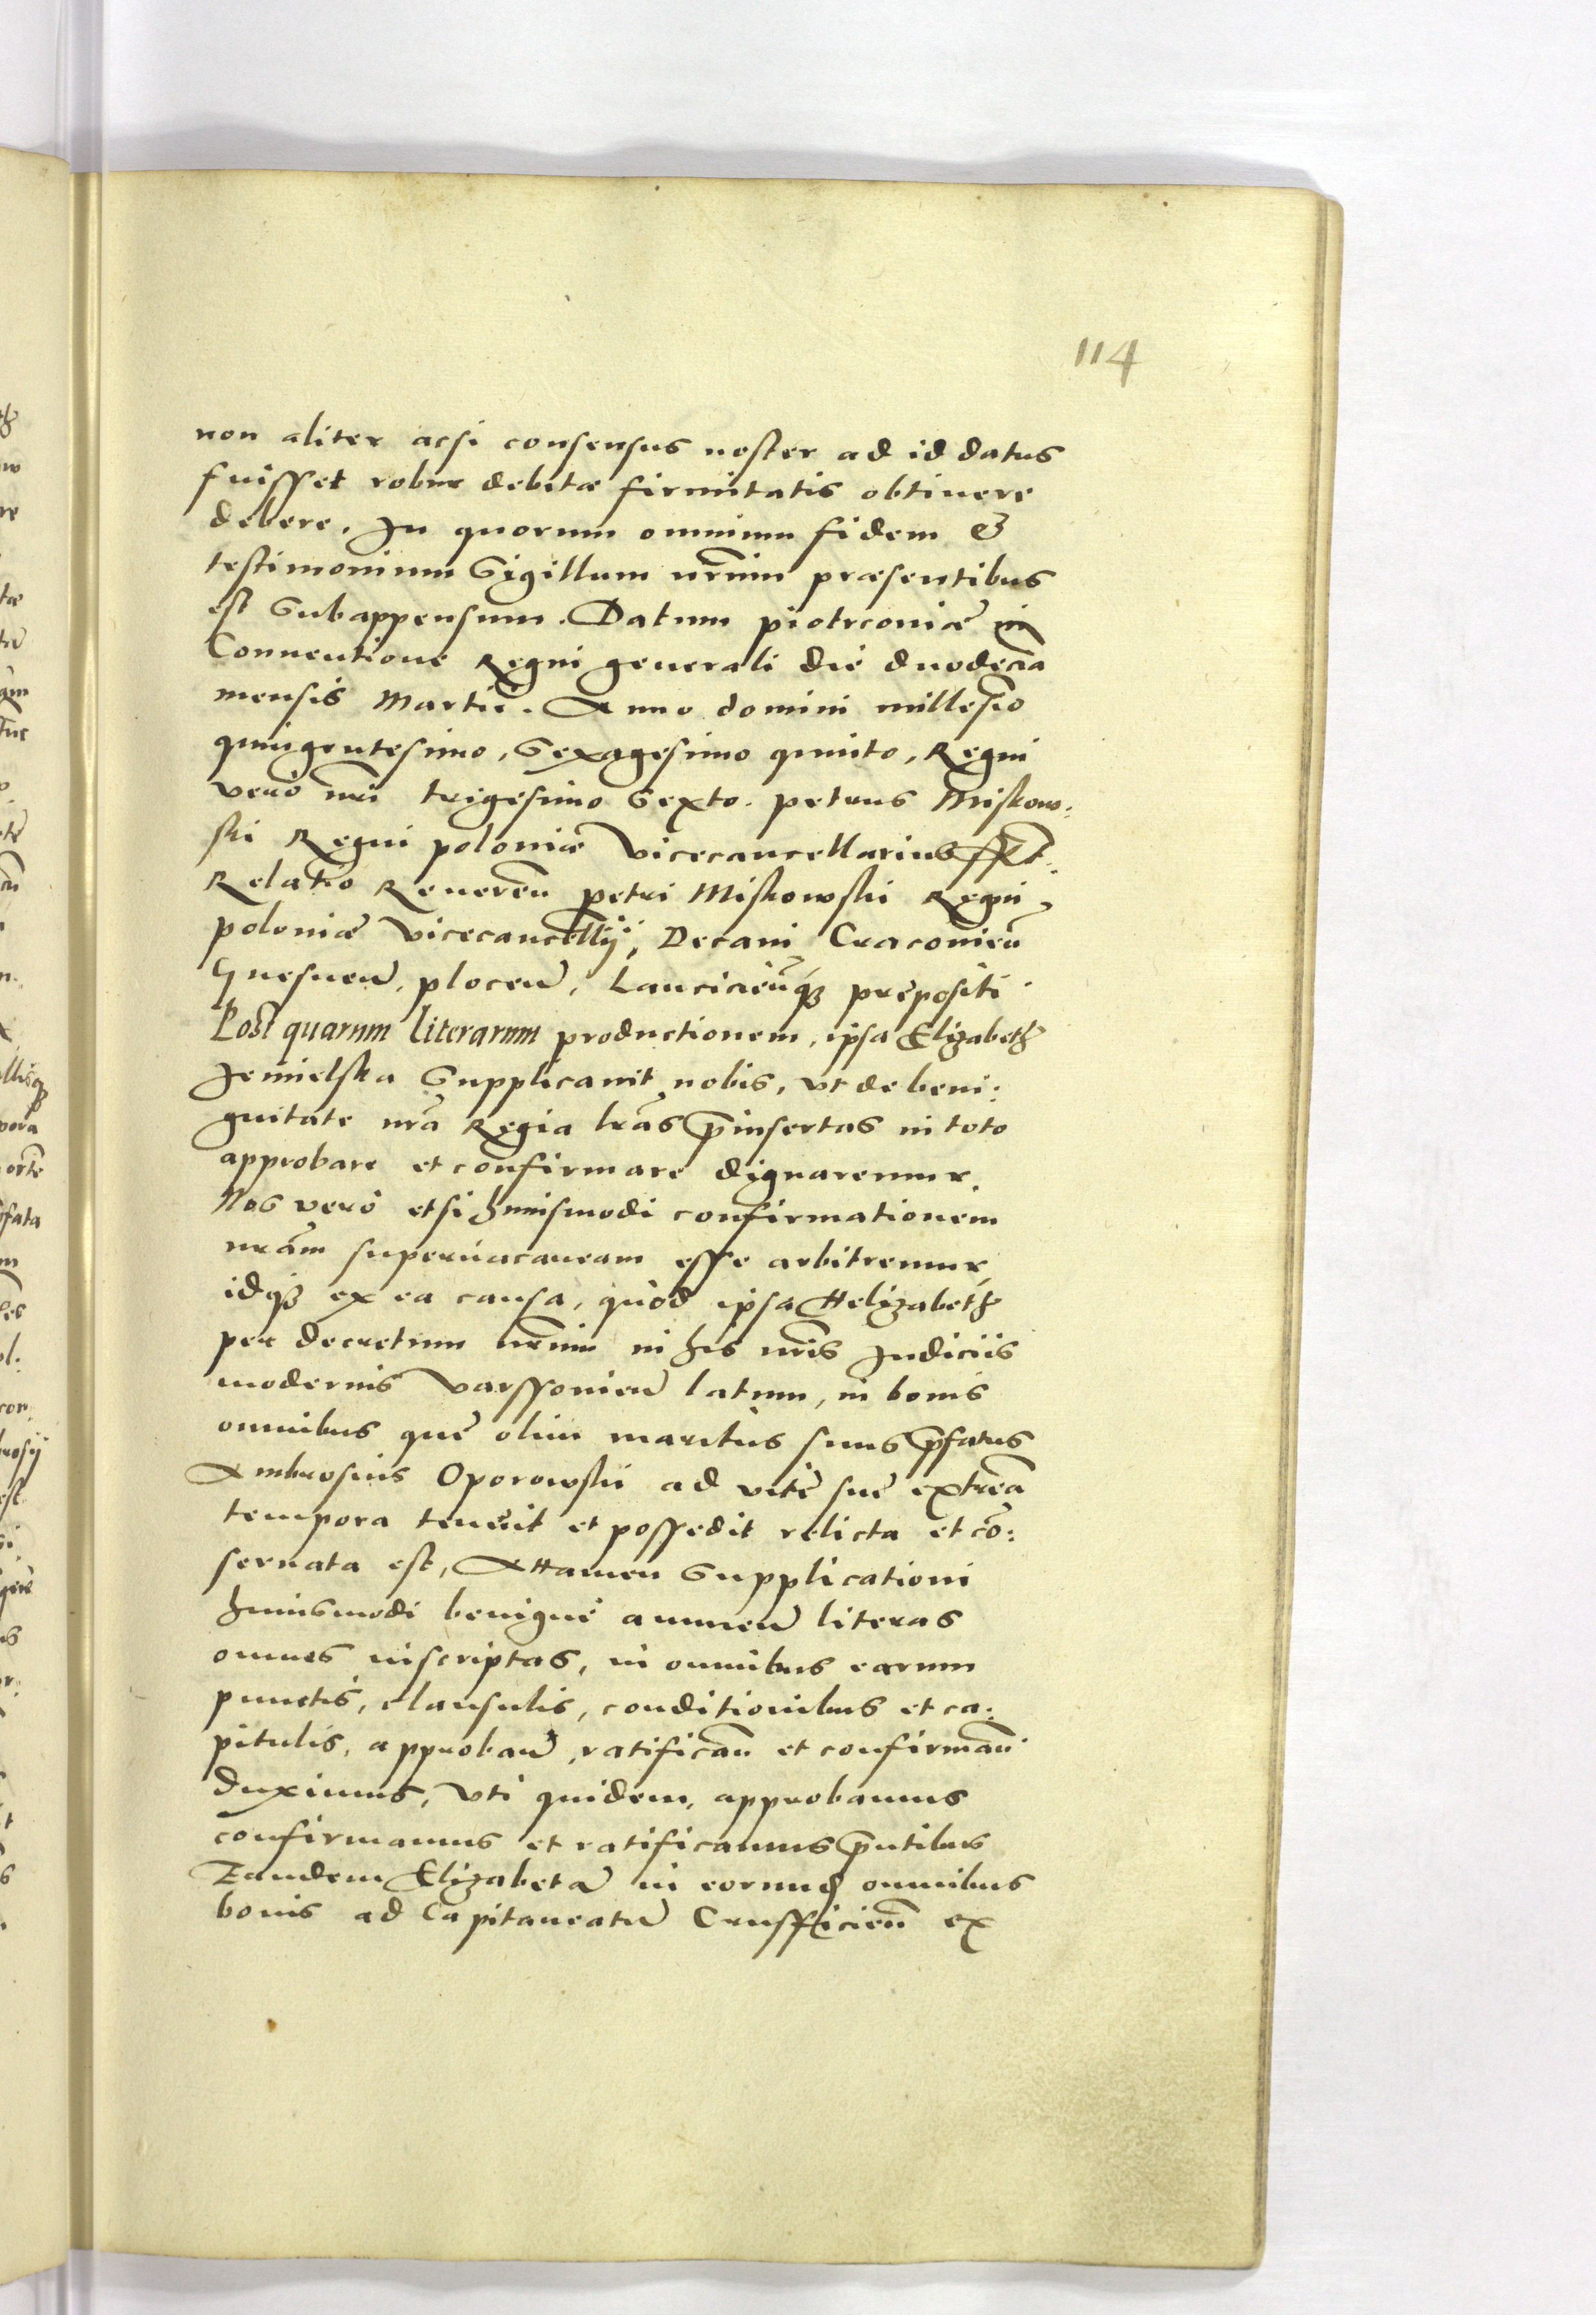 114
non aliter acsi consensus noster ad id datus
fuisset robur debitæ firmitatis obtinere
debere. In quorum omnium fidem &
testimonium Sigillum nr̃um præsentibus
est Subappensum. Datum piotrconiæ in
Conuentione Regni generali die duodecĩa
mensis Martii. Anno domini millesĩo
quingentesimo, Sexagesimo quinto, Regni
vero nr̃i trigesimo Sexto. petrus Miskow:
ski Regni poloniæ Vicecancellarius sspt.
Relatio Reueren̄ petri Miskowski Regni
poloniæ Vicecancellij, Decani Cracouien̄
Gnesnen̄, plocen̄, Lancicien̄q₃ prepositi
Post quarum literarum productionem, ipsa Elizabeth
Jemielska Supplicauit nobis, vt de beni:
gnitate nr̃a Regia lr̃as p̄insertas in toto
approbare et confirmare dignaremur.
Nos vero etsi huiusmodi confirmationem
nr̃am superuacaneam esse arbitremur,
idq₃ ex ea causa, quòd ipsa Helizabeth
per decretum nr̃um in his nr̃is Judiciis
modernis Varssouien̄ latum, in bonis
omnibus que olim maritus suus p̄fatus
Ambrosius Oporowski ad vite sue extrẽa
tempora tenuit et possedit relicta et cõ:
seruata est, Attamen Supplicationi
huiusmodi benigne annuen̄ literas
omnes inscriptas, in omnibus earum
punctis, clausulis, conditionibus et ca:
pitulis, approban̄, ratifican̄ et confirman̄
duximus, vti quidem, approbamus
confirmamus et ratificamus p̄ntibus
Eandem Elizabetā in eorund̄ omnibus
bonis ad Capitaneatū Crussficien̄ ex